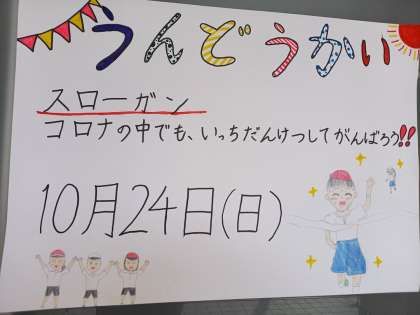 うんどうかい
スローガン
コロナの中でも、いっちだんけつしてがんばろう!!
10月24日(日)